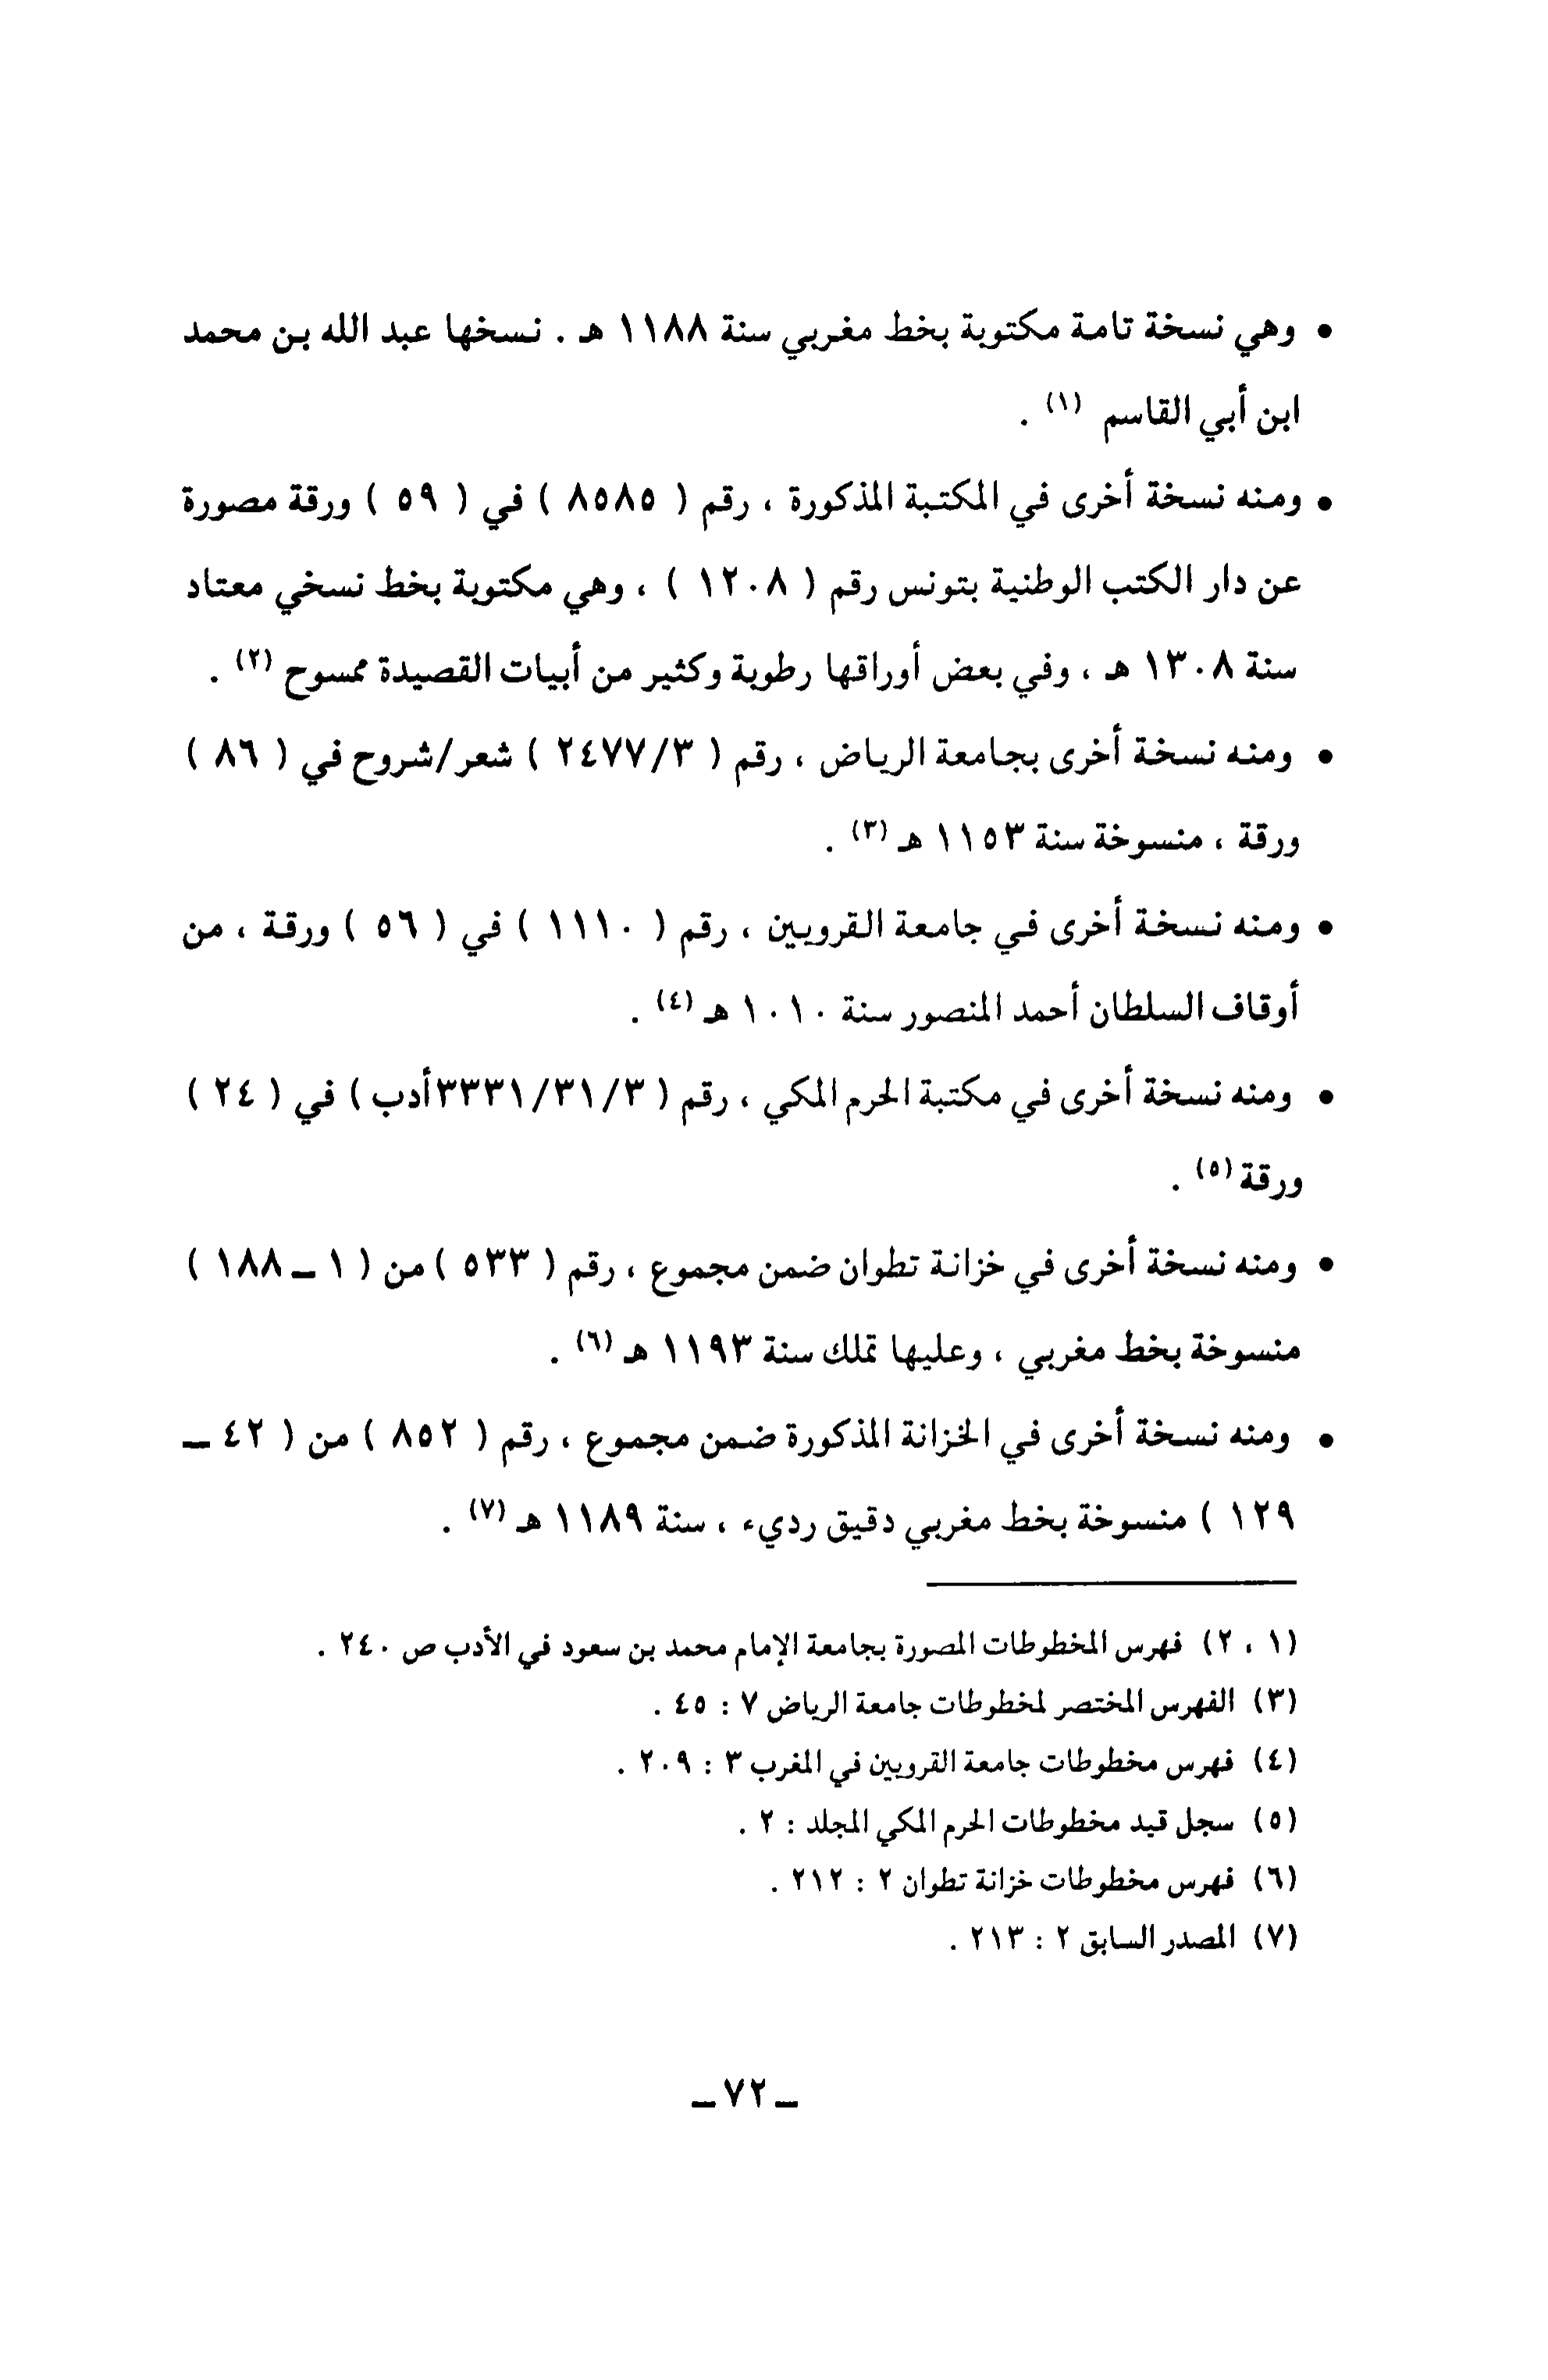 • وهي نسخة تامة مكتوبة بخط مغربي سنة ١١٨٨ هـ . نسخها عبد الله بن محمد
ابن أبي القاسم (١) .
• ومنه نسخة أخرى في المكتبة المذكورة ، رقم ( ٨٥٨٥ ) في ( ٥٩ ) ورقة مصورة
عن دار الكتب الوطنية بتونس رقم ( ١٢٠٨ ) ، وهي مكتوبة بخط نسخي معتاد
سنة ١٣٠٨ هـ ، وفي بعض أوراقها رطوبة وكثير من أبيات القصيدة ممسوح (٢) .
• ومنه نسخة أخرى بجامعة الرياض ، رقم ( ٢٤٧٧/٣ ) شعر/شروح في ( ٨٦ )
ورقة ، منسوخة سنة ١١٥٣ هـ (٣) .
• ومنه نسخة أخرى في جامعة القرويين ، رقم ( ١١١٠ ) في ( ٥٦ ) ورقة ، من
أوقاف السلطان أحمد المنصور سنة ١٠١٠ هـ (٤) .
• ومنه نسخة أخرى في مكتبة الحرم المكي ، رقم ( ٣٣٣١/٣١/٣أدب ) في ( ٢٤ )
ورقة (٥) .
• ومنه نسخة أخرى في خزانة تطوان ضمن مجموع ، رقم ( ٥٣٣ ) من ( ١ ـ ١٨٨ )
منسوخة بخط مغربي ، وعليها تملك سنة ١١٩٣ هـ (٦) .
• ومنه نسخة أخرى في الخزانة المذكورة ضمن مجموع ، رقم ( ٨٥٢ ) من ( ٤٢ ـ
١٢٩ ) منسوخة بخط مغربي دقيق رديء ، سنة ١١٨٩ هـ (٧) .
(١ ، ٢) فهرس المخطوطات المصورة بجامعة الإمام محمد بن سعود في الأدب ص ٢٤٠ .
(٣) الفهرس المختصر لمخطوطات جامعة الرياض ٧ : ٤٥ .
(٤) فهرس مخطوطات جامعة القرويين في المغرب ٣ : ٢٠٩ .
(٥) سجل قيد مخطوطات الحرم المكي المجلد : ٢ .
(٦) فهرس مخطوطات خزانة تطوان ٢ : ٢١٢ .
(٧) المصدر السابق ٢ : ٢١٣ .
ـ ٧٢ ـ